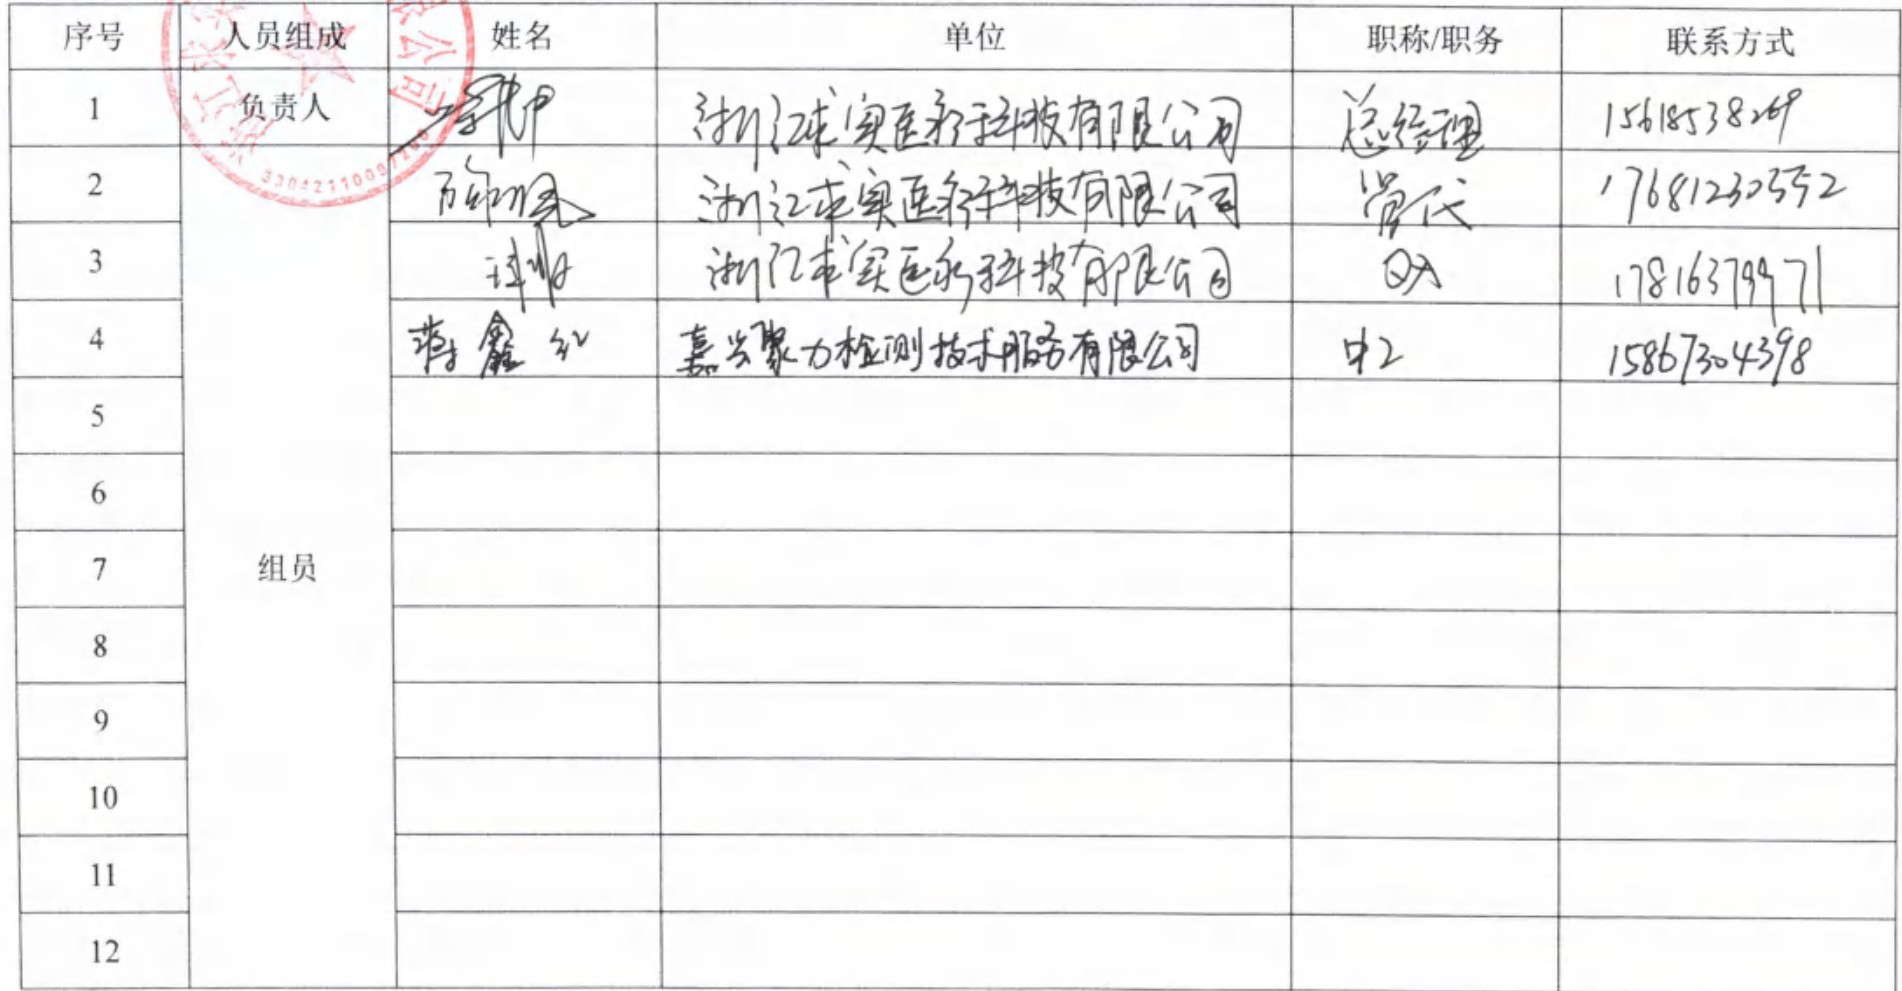 序号 人员组成 姓名 单位 职称/职务 联系方式
1 负责人 浙江求实医疗科技有限公司 总经理 15618538269
2 浙江求实医疗科技有限公司 管代 17681230552
3 浙江求实医疗科技有限公司 QA 17816379971
4 蒋鑫红 嘉兴聚力检测技术服务有限公司 中工 15867304398
5
6
7 组员
8
9
10
11
12